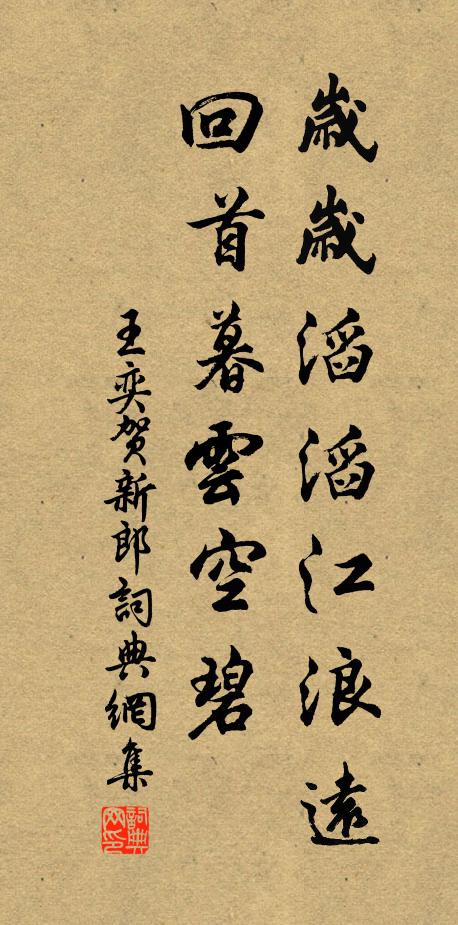 歲歲滔滔江浪遠
回首暮雲空碧
王奕賀新郎詞典網集
詞典网印